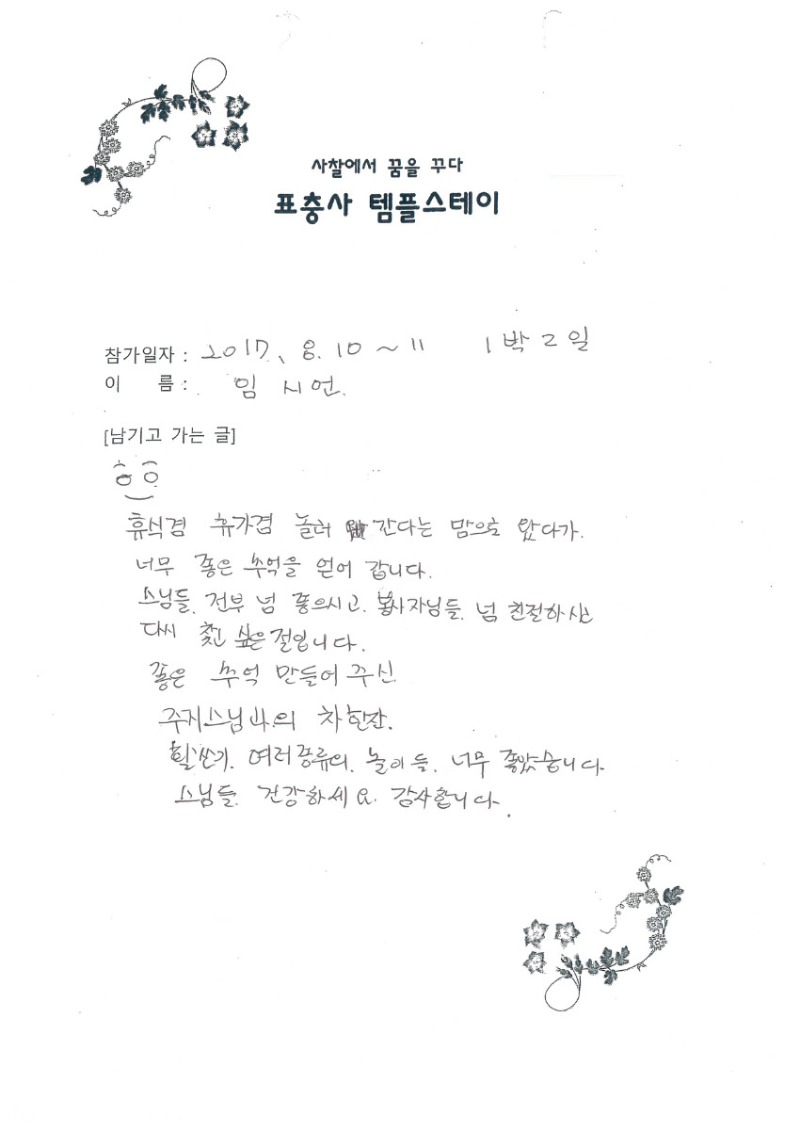 사찰에서 꿈을 꾸다
표충사 템플스테이
참가일자 : 2017. 8. 10 ~ 11 1박 2일
이 름 : 임 시언.
[남기고 가는 글]
휴식겸 휴가겸 놀러 간다는 맘으로 왔다가.
너무 좋은 추억을 얻어 갑니다.
스님들. 전부 넘 좋으시고. 봉사자님들. 넘 친절하신
다시 찾고 싶은 절입니다.
좋은 추억 만들어 주신
주지스님과의 차한잔.
활쏘기. 여러종류의. 놀이들. 너무 좋았습니다.
스님들. 건강하세요. 감사합니다.